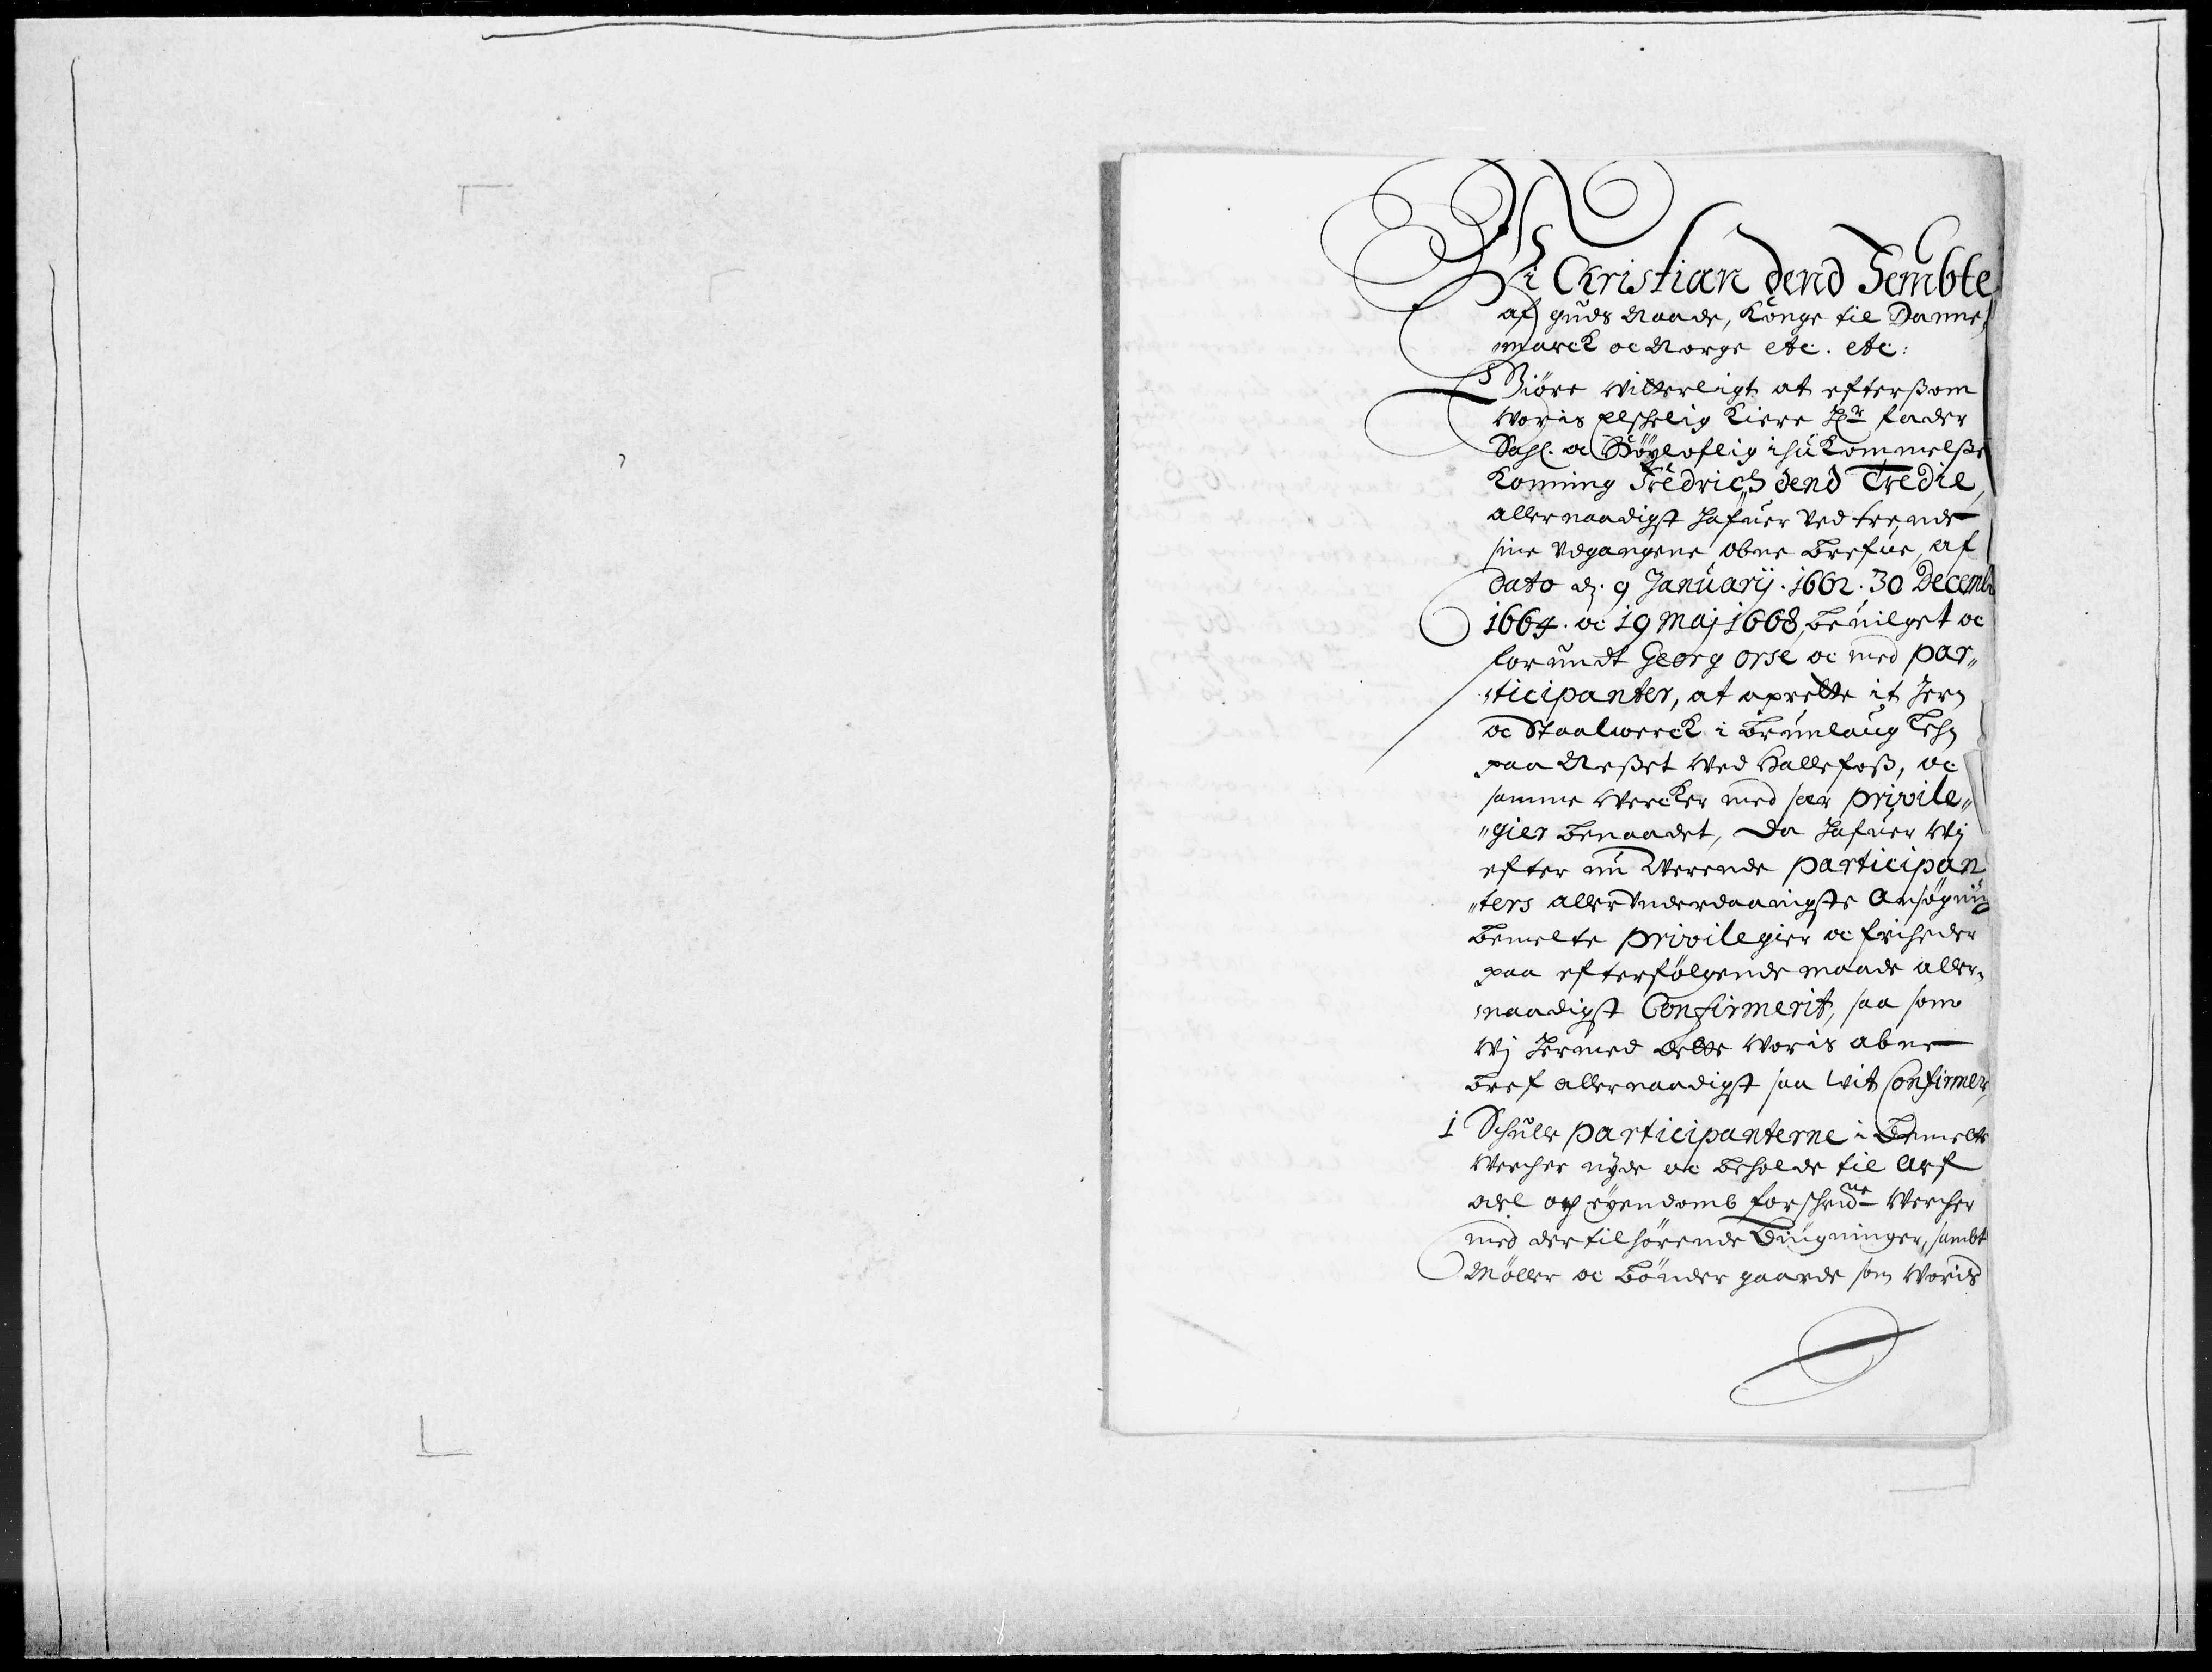 Wi Christian dend Fembte
af Guds Naade, Konge til Danne,
marck oc Norge etc. etc:
Giøre Vitterligt at eftersom
Woris Elschelig Kiere Hr Fader
Sahl. oc Høyloflig ihukommelsse
Konning Fredrich dend Tredie,
allernaadigst hafuer ved trende
sine udgangene obne Brefue, af
dato d. 9 Januarij. 1662. 30 Decemb
1664. oc 19 Maj 1668, beuilget oc
forundt Georg Orse oc med par„
„ticipanter, at oprette it Jern
oc Staalwerck i Brunlaug Lehn
paa Nesset ved Hallefoss, oc
samme Wercker med sær privile„
„gier benaadet, Da hafuer Wj
efter nu Werende participan
„ters allerunderdaanigste Ansøgning
bemelte privilegier oc friheder
paa efterfølgende maade aller„
„naadigst Confirmerit, saa som
Wj hermed dette Woris abne
bref allernaadigst saa wit Confirmer,
1 Schulle participanterne i bemelte
Wercker nyde oc beholde til Arf
odel och eyendomb forschrne Wercher
med der tilhørende Bugninger, sambt
Møller oc bønder gaarde som Woris